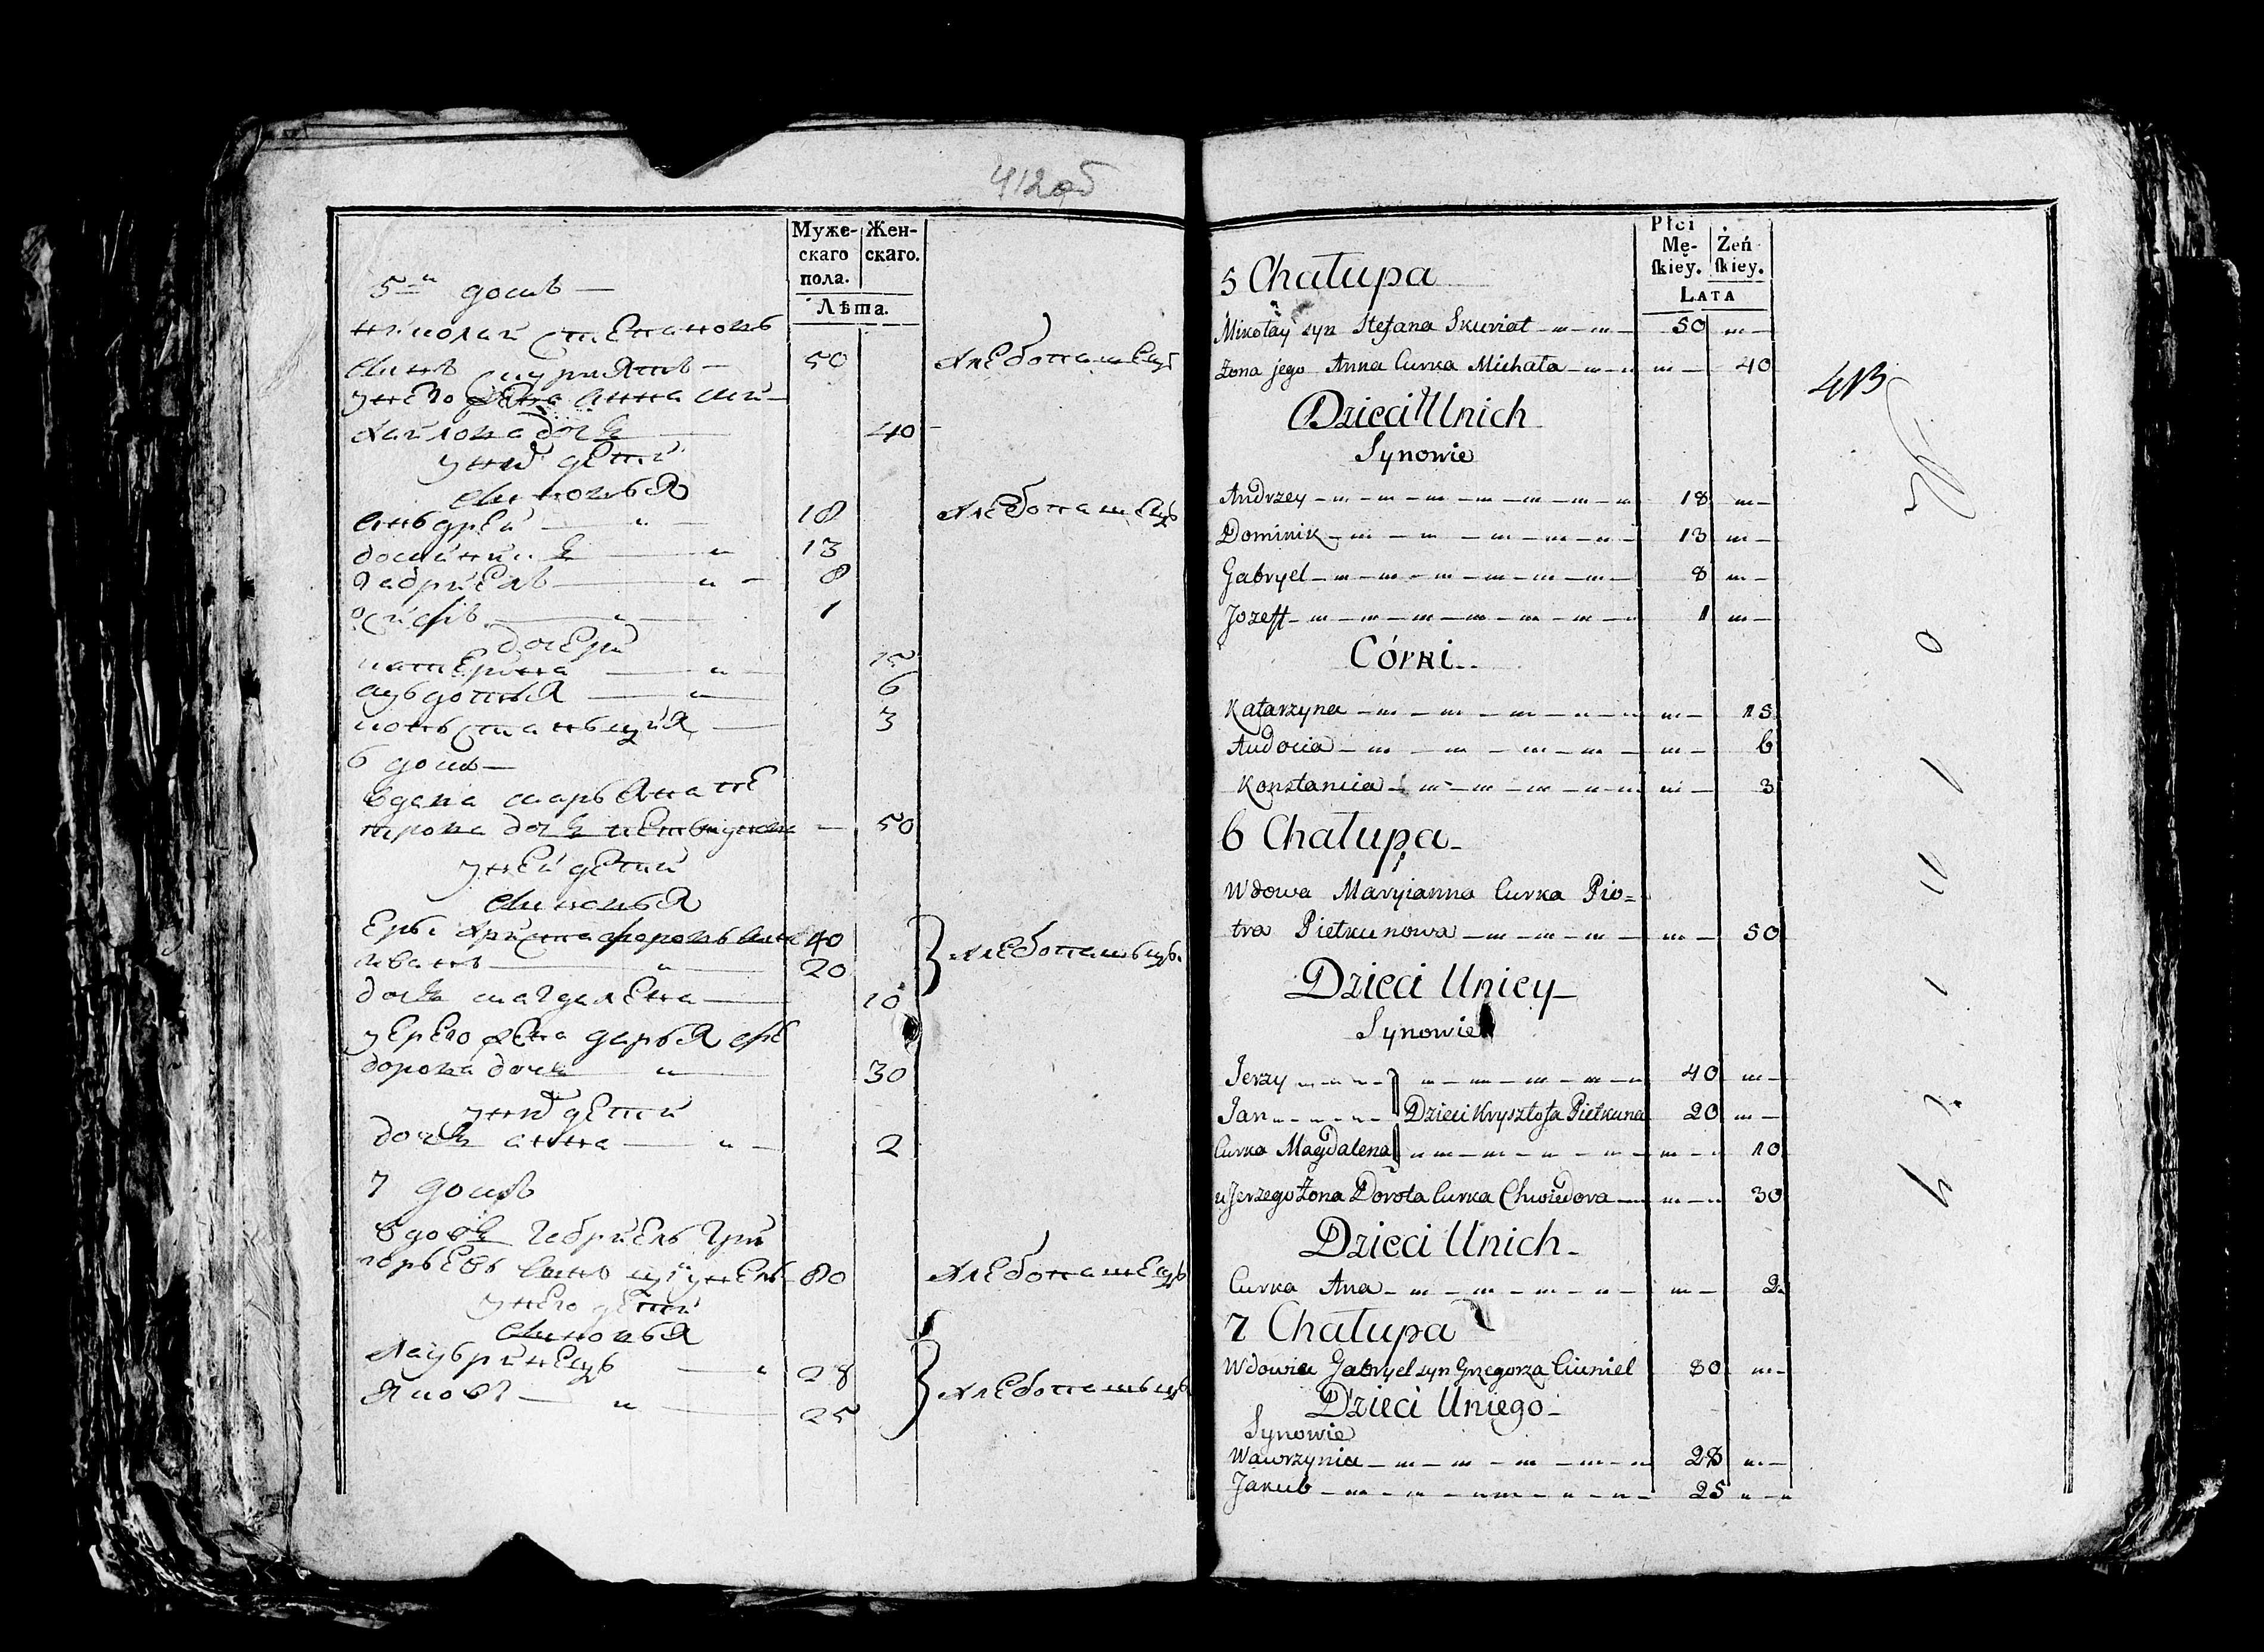 412об
Муже-
скаго
пола.
Жен-
скаго.
Лѣта.
5 домъ
николай Степановъ
сынъ Скуриятъ 50 хлебопашецъ
унего жена анна ми-
хайлова дочь 40
унихъ дети
сыновья
анъдрей 18 хлебопашецъ
доминикъ 13
габриель 8
осифъ 1
дочери
катерина 15
аувдотья 6
конъстанъция 3
6 домъ
вдова марьяна пе
трова дочь петкунова 50
уней дети
сыновья
40
иванъ 20 хлебопашъцъ
дочь магдалена 10
жена дарья фе
дорова дочь 30
унихъ дети
дочь анна 2
7 домъ
вдовецъ габриель гри
горьевъ сынъ 80 хлебопашецъ
унего дети
сыновья
лаувринецъ 28
яковъ 25 хлебопашъцы
Płci
Mę-
ſkiey.
Żeń
ſkiey.
LATA
5 Chałupa
Mikołay syn Stefana Skuriat 50
Żona jego Anna Curka Michała 40
413
Dzieci Unich
Synowie
Andrzey 18
Dominik 13
Gabryel 8
Jozeff 1
Córki
Katarzyna 15
Audocia 6
Konstancia 3
6 Chałupa
Wdowa Maryianna Curka Pio=
tra Pietkunowa 50
Dzieci Uniey
Synowie
Jerzy 40
Jan Dzieci Krysztofa Pietkuna 20
Curka Magdalena 10
u Jerzego Żona Dorota Curka Chwiedora 30
Dzieci Unich
Curka Ana 2
7 Chałupa
Wdowiec Gabryel syn Grzegorza Ciuniel 80
Dzieci Uniego
Synowie
Wawrzyniec 28
Jakub 25